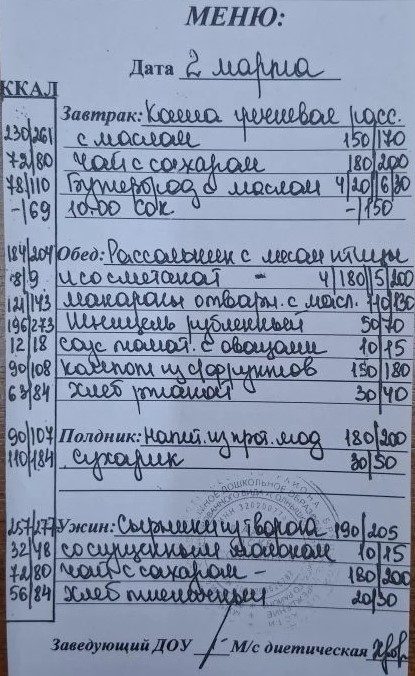 МЕНЮ:
Дата 2 марта
ККАЛ
Завтрак: Каша гречневая расс.
230/261 с маслом 150/170
72/80 Чай с сахаром 180/200
78/110 Бутерброд с маслом 4/20/6/30
-/69 10:00 Сок -/150
184/204 Обед: Рассольник с мясом птицы
8/9 и со сметаной - 4/180/5/200
121/143 макароны отварн. с масл. 110/130
196/273 Шницель рубленный 50/70
12/18 соус томат. с овощами 10/15
90/108 компот из с/фруктов 150/180
63/84 Хлеб ржаной 30/40
90/107 Полдник: Напит. из прот. мод 180/200
110/184 Сухарик 30/50
257/277 Ужин: Сырники из творога 190/205
32/48 со сгущенным молоком 10/15
72/80 Чай с сахаром - 180/200
56/84 Хлеб пшеничный 20/30
Заведующий ДОУ М/с диетическая